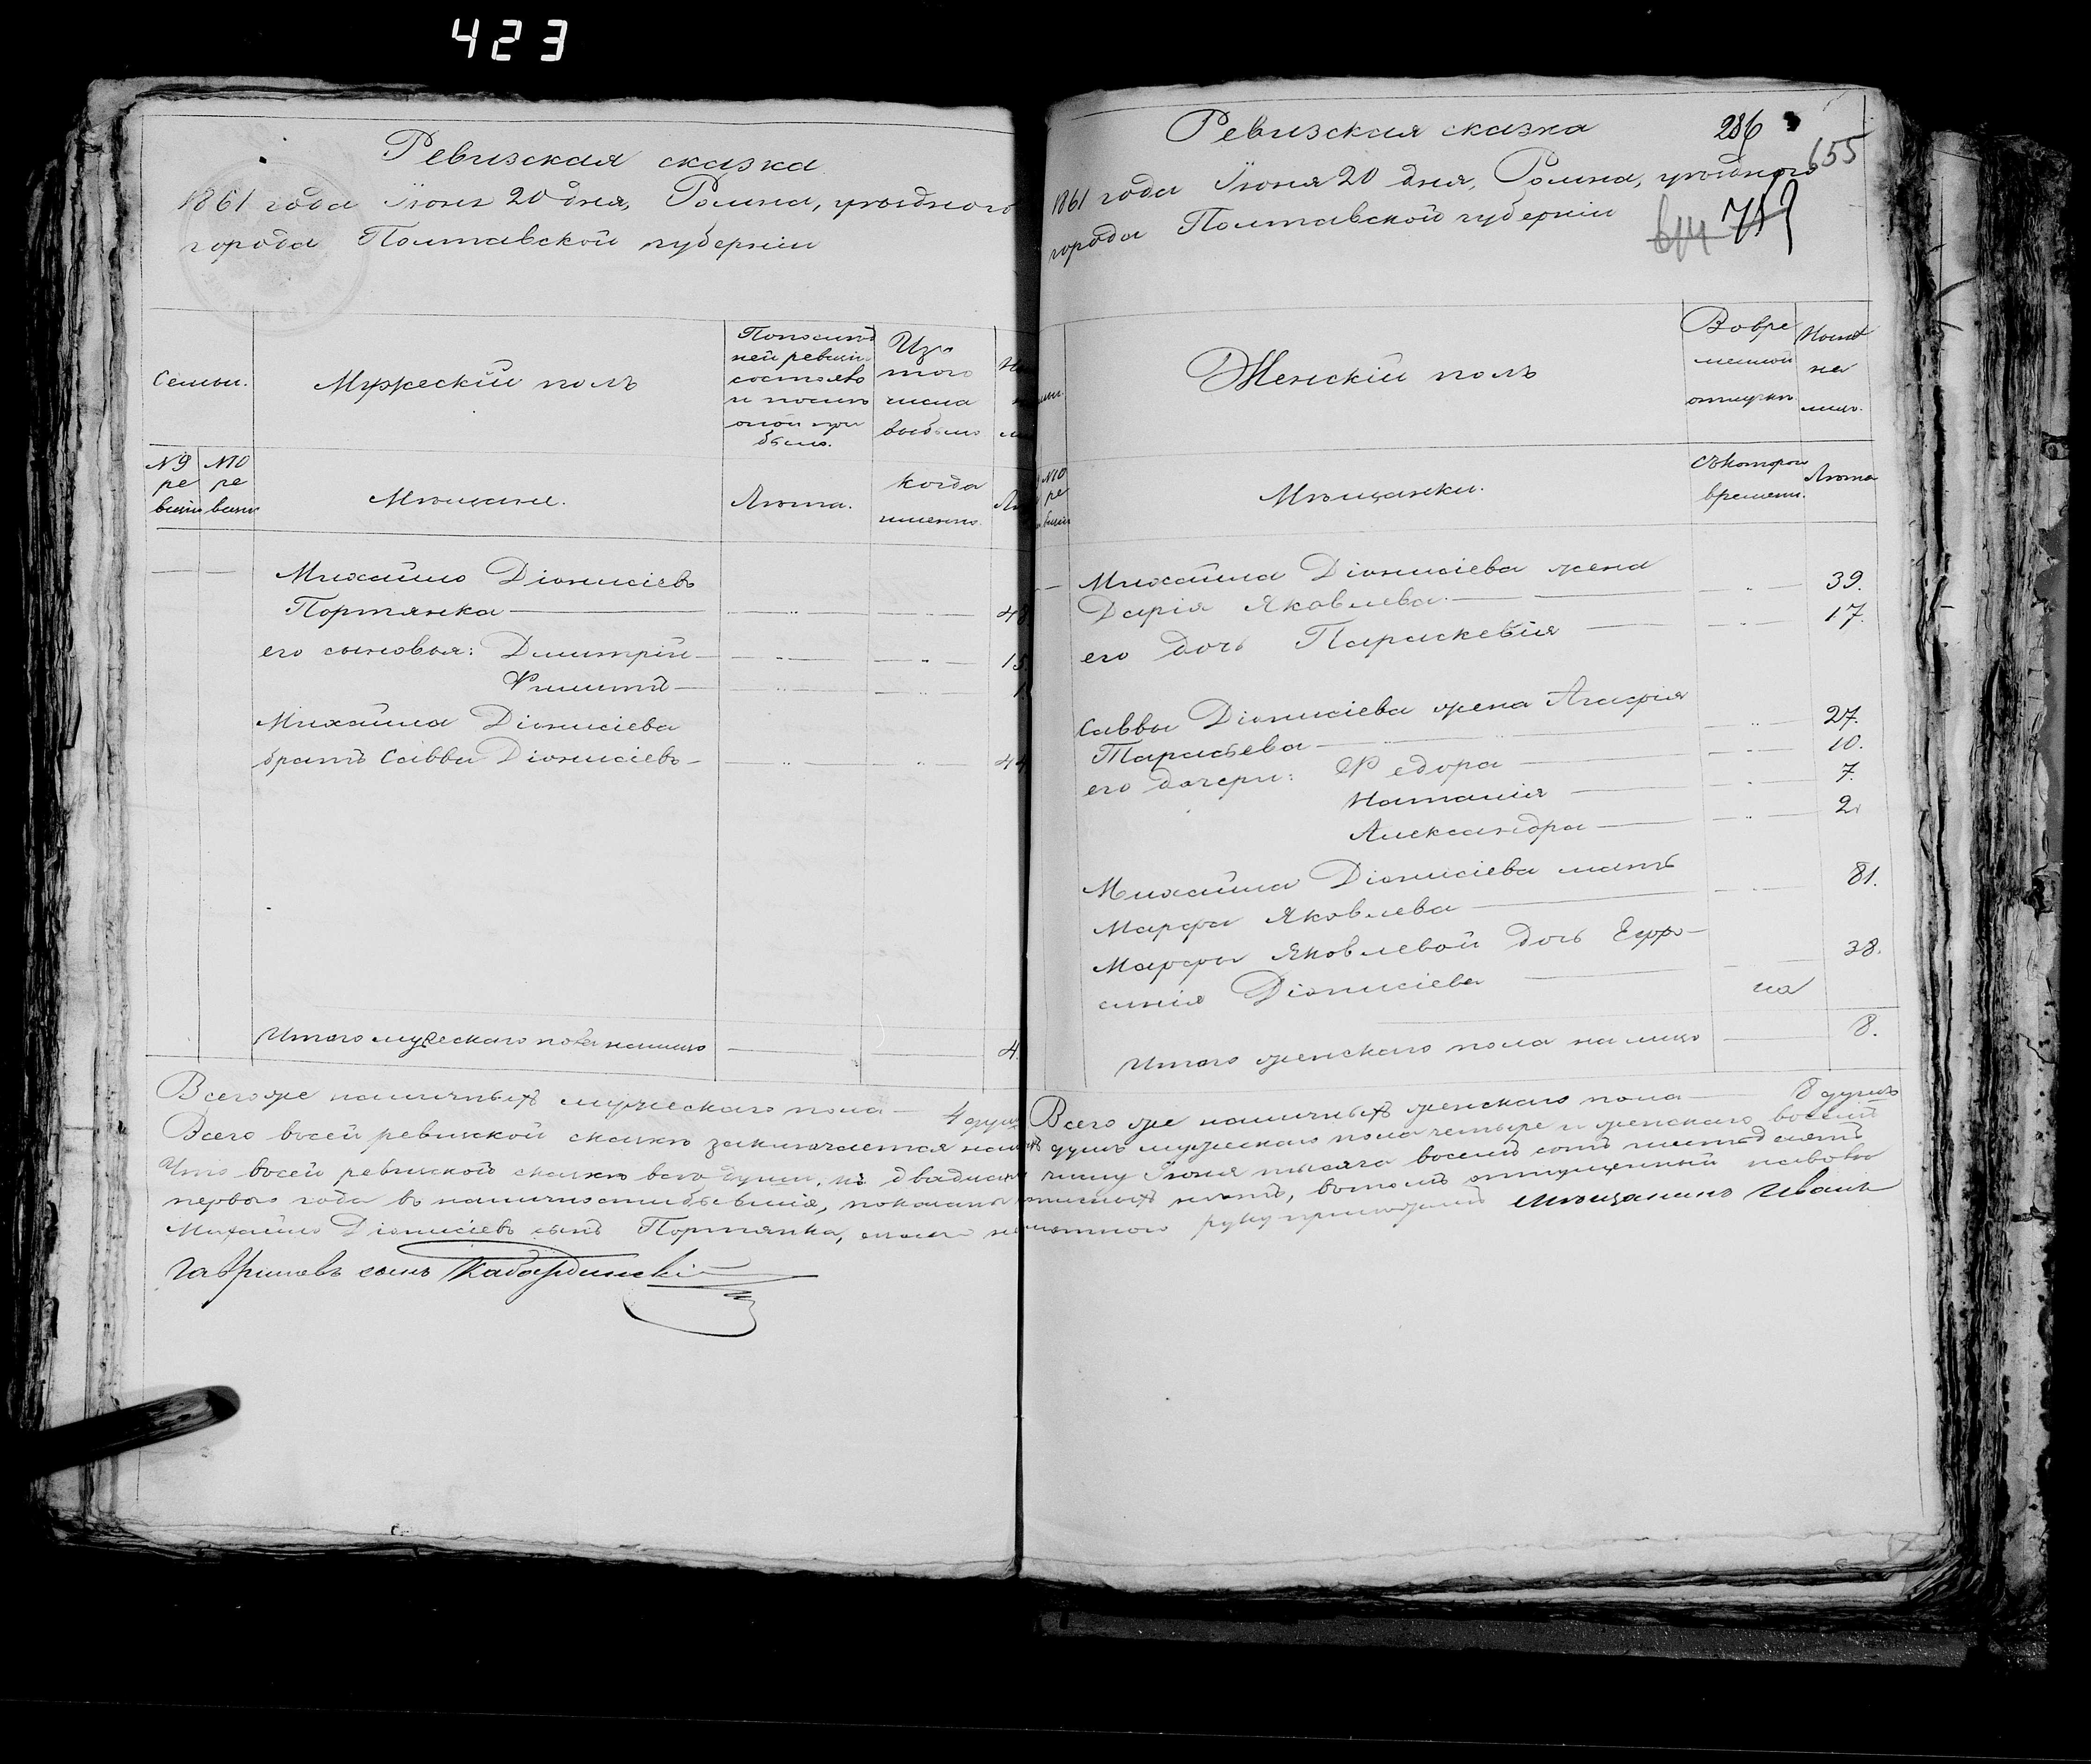 423
Ревизская сказка
1861 года Іюня 20 дня, Ромна, уѣзднаго
города Полтавской губерніи
Семьи.
Мужескій полъ
По послѣд
ней ревизіи
состояло
и послѣ
оной при
было.
Изъ
того
числа
выбыло
№9
ре
визіи
№10
ре
визіи
Мѣщане.
Лѣта.
когда
именно.
Михайло Діонисіевъ
Портянка 48
его сыновья: Димитрій 15.
Филиппъ 1.
Михайла Діонисіева
братъ Савва Діонисіевъ 44
Итого мужескаго пола налицо 4.
Всего же наличныхъ мужескаго пола 4 душ
Ревизская сказка
286
655
1861 года Іюня 20 дня, Ромна, уѣзднаго
города Полтавской губерніи
Женскій полъ
Во вре
менной
отлучкѣ.
Нынѣ
на
лицо.
№10
ре
визіи
Мѣщанки.
Съ котораго
времени.
Лѣта
Михайла Діонисіева жена
Дарія Яковлева 39.
его дочь Параскевія 17.
Саввы Діонисіева жена Агафія
Тарасьева 27.
его дочери: Федора 10.
Наталія 7.
Александра 2.
Михайла Діонисіева мать
Марфа Яковлева 81.
Марфы Яковлевой дочь Ефро-
синія Діонисіева 38.
Итого женскаго пола на лицо 8.
Всего же наличныхъ женскаго пола 8 душъ
Всего въ сей ревизской сказкѣ заключается душъ мужескаго пола четыре и женскаго восемь
Что въ сей ревизской сказкѣ всѣ души, къ двадцатому числу Іюня тысяча восемь сотъ шестьдесятъ
перваго года въ наличности бывшія, показаны
Михайло Діонисіевъ сынъ Портянка, руку приложилъ Мѣщанинъ Иванъ
Гавриловъ сынъ Кабардинскій